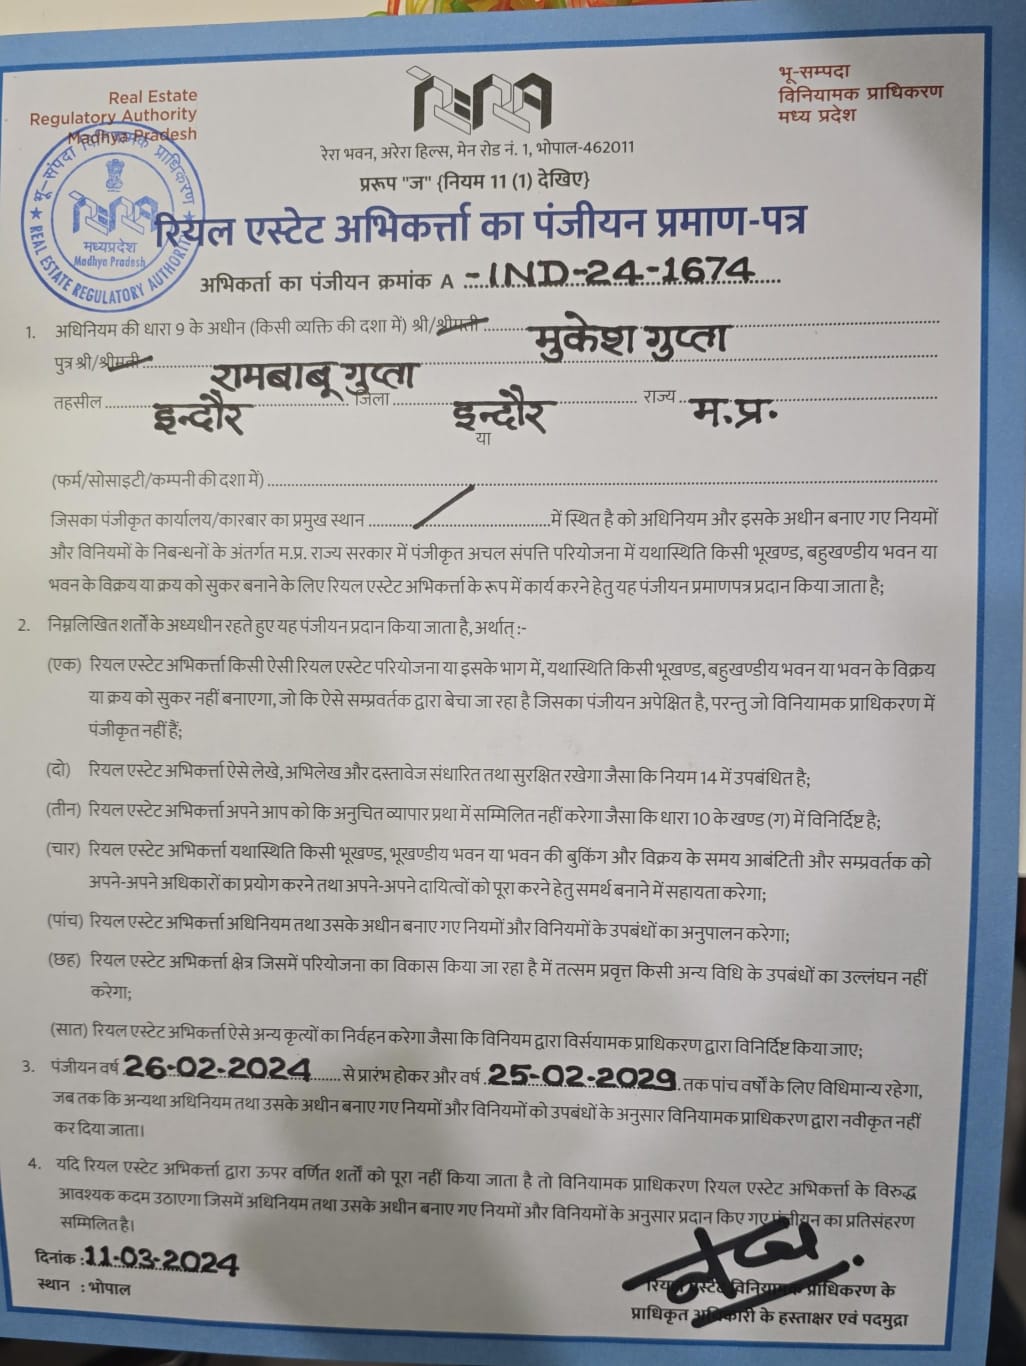 Real Estate
Regulatory Authority
Madhya Pradesh
RERA
भू-सम्पदा
विनियामक प्राधिकरण
मध्य प्रदेश
भू-संपदा विनियामक प्राधिकरण
RERA
मध्यप्रदेश
Madhya Pradesh
REAL ESTATE REGULATORY AUTHORITY
रेरा भवन, अरेरा हिल्स, मेन रोड नं. 1, भोपाल-462011
प्ररूप "ज" {नियम 11 (1) देखिए}
रियल एस्टेट अभिकर्त्ता का पंजीयन प्रमाण-पत्र
अभिकर्ता का पंजीयन क्रमांक A -IND-24-1674
1. अधिनियम की धारा 9 के अधीन (किसी व्यक्ति की दशा में) श्री/श्रीमती मुकेश गुप्ता
पुत्र श्री/श्रीमती रामबाबू गुप्ता
तहसील इन्दौर जिला इन्दौर राज्य म.प्र.
या
(फर्म/सोसाइटी/कम्पनी की दशा में)
जिसका पंजीकृत कार्यालय/कारबार का प्रमुख स्थान में स्थित है को अधिनियम और इसके अधीन बनाए गए नियमों
और विनियमों के निबन्धनों के अंतर्गत म.प्र. राज्य सरकार में पंजीकृत अचल संपत्ति परियोजना में यथास्थिति किसी भूखण्ड, बहुखण्डीय भवन या
भवन के विक्रय या क्रय को सुकर बनाने के लिए रियल एस्टेट अभिकर्त्ता के रूप में कार्य करने हेतु यह पंजीयन प्रमाणपत्र प्रदान किया जाता है;
2. निम्नलिखित शर्तों के अध्यधीन रहते हुए यह पंजीयन प्रदान किया जाता है, अर्थात् :-
(एक) रियल एस्टेट अभिकर्त्ता किसी ऐसी रियल एस्टेट परियोजना या इसके भाग में, यथास्थिति किसी भूखण्ड, बहुखण्डीय भवन या भवन के विक्रय
या क्रय को सुकर नहीं बनाएगा, जो कि ऐसे सम्प्रवर्तक द्वारा बेचा जा रहा है जिसका पंजीयन अपेक्षित है, परन्तु जो विनियामक प्राधिकरण में
पंजीकृत नहीं हैं;
(दो) रियल एस्टेट अभिकर्त्ता ऐसे लेखे, अभिलेख और दस्तावेज संधारित तथा सुरक्षित रखेगा जैसा कि नियम 14 में उपबंधित है;
(तीन) रियल एस्टेट अभिकर्त्ता अपने आप को कि अनुचित व्यापार प्रथा में सम्मिलित नहीं करेगा जैसा कि धारा 10 के खण्ड (ग) में विनिर्दिष्ट है;
(चार) रियल एस्टेट अभिकर्त्ता यथास्थिति किसी भूखण्ड, भूखण्डीय भवन या भवन की बुकिंग और विक्रय के समय आबंटिती और सम्प्रवर्तक को
अपने-अपने अधिकारों का प्रयोग करने तथा अपने-अपने दायित्वों को पूरा करने हेतु समर्थ बनाने में सहायता करेगा;
(पांच) रियल एस्टेट अभिकर्त्ता अधिनियम तथा उसके अधीन बनाए गए नियमों और विनियमों के उपबंधों का अनुपालन करेगा;
(छह) रियल एस्टेट अभिकर्त्ता क्षेत्र जिसमें परियोजना का विकास किया जा रहा है में तत्सम प्रवृत्त किसी अन्य विधि के उपबंधों का उल्लंघन नहीं
करेगा;
(सात) रियल एस्टेट अभिकर्त्ता ऐसे अन्य कृत्यों का निर्वहन करेगा जैसा कि विनियम द्वारा विर्सयामक प्राधिकरण द्वारा विनिर्दिष्ट किया जाए;
3. पंजीयन वर्ष 26-02-2024 से प्रारंभ होकर और वर्ष 25-02-2029 तक पांच वर्षों के लिए विधिमान्य रहेगा,
जब तक कि अन्यथा अधिनियम तथा उसके अधीन बनाए गए नियमों और विनियमों को उपबंधों के अनुसार विनियामक प्राधिकरण द्वारा नवीकृत नहीं
कर दिया जाता।
4. यदि रियल एस्टेट अभिकर्त्ता द्वारा ऊपर वर्णित शर्तों को पूरा नहीं किया जाता है तो विनियामक प्राधिकरण रियल एस्टेट अभिकर्त्ता के विरुद्ध
आवश्यक कदम उठाएगा जिसमें अधिनियम तथा उसके अधीन बनाए गए नियमों और विनियमों के अनुसार प्रदान किए गए पंजीयन का प्रतिसंहरण
सम्मिलित है।
दिनांक : 11-03-2024
स्थान : भोपाल
रियल एस्टेट विनियामक प्राधिकरण के
प्राधिकृत अधिकारी के हस्ताक्षर एवं पदमुद्रा